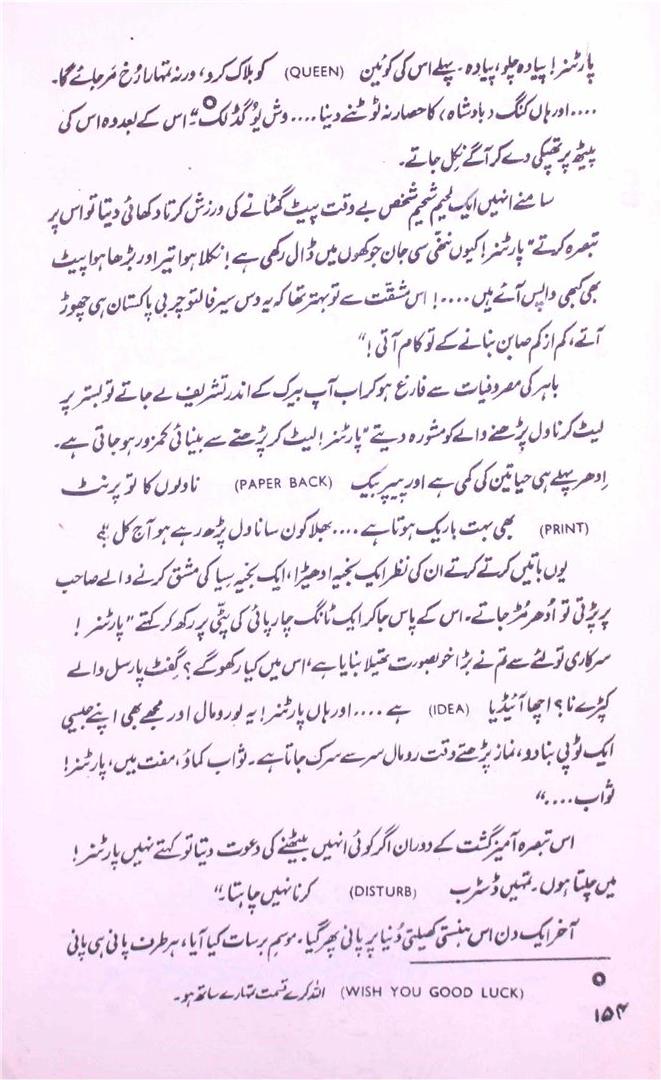 پارٹنر! پیادہ چلو، پیادہ۔ پہلے اس کی کوئین (QUEEN) کو بلاک کرو، ورنہ تمہارا رُخ مَر جائے گا۔
....اور ہاں کنگ (بادشاہ) کا حصار نہ ٹوٹنے دینا.... وش یُو گڈ لک"۔ اس کے بعد وہ اس کی
پیٹھ پر تھپکی دے کر آگے نکل جاتے۔
سامنے انہیں ایک لحیم شحیم شخص بے وقت پیٹ گھٹانے کی ورزش کرتا دکھائی دیتا تو اس پر
تبصرہ کرتے "پارٹنر! کیوں ننھی سی جان جوکھوں میں ڈال رکھی ہے! نکلا ہوا تیر اور بڑھا ہوا پیٹ
بھی کبھی واپس آئے ہیں....! اس مشقّت سے تو بہتر تھا کہ یہ دس سیر فالتو چربی پاکستان ہی چھوڑ
آتے، کم از کم صابن بنانے کے تو کام آتی!"
باہر کی مصروفیات سے فارغ ہو کر اب آپ بیرک کے اندر تشریف لے جاتے تو بستر پر
لیٹ کر ناول پڑھنے والے کو مشورہ دیتے "پارٹنر! لیٹ کر پڑھنے سے بینائی کمزور ہو جاتی ہے۔
اِدھر پہلے ہی حیاتین کی کمی ہے اور پیپر بیک (PAPER BACK) ناولوں کا تو پرنٹ
(PRINT) بھی بہت باریک ہوتا ہے.... بھلا کون سا ناول پڑھ رہے ہو آج کل؟"
یوں باتیں کرتے کرتے ان کی نظر ایک بخیہ ادھیڑا، ایک بخیہ سِیا کی مشق کرنے والے صاحب
پر پڑتی تو اُدھر مُڑ جاتے۔ اس کے پاس جا کر ایک ٹانگ چارپائی کی پٹّی پر رکھ کر کہتے "پارٹنر!
سرکاری تولئے سے تم نے بڑا خوبصورت تھیلا بنایا ہے، اس میں کیا رکھو گے؟ گفٹ پارسل والے
کپڑے نا؟ اچھا آئیڈیا (IDEA) ہے.... اور ہاں پارٹنر! یہ لو رومال اور مجھے بھی اپنے جیسی
ایک ٹوپی بنا دو، نماز پڑھتے وقت رومال سر سے سرک جاتا ہے۔ ثواب کماؤ، مفت میں، پارٹنر!
ثواب...."
اس تبصرہ آمیز گشت کے دوران اگر کوئی انہیں بیٹھنے کی دعوت دیتا تو کہتے نہیں پارٹنر!
میں چلتا ہوں۔ تمہیں ڈسٹرب (DISTURB) کرنا نہیں چاہتا۔"
آخر ایک دن اس ہنستی کھیلتی دُنیا پر پانی پھر گیا۔ موسمِ برسات کیا آیا، ہر طرف پانی ہی پانی
(WISH YOU GOOD LUCK) اللہ کرے قسمت تمہارے ساتھ ہو۔
۱۵۴